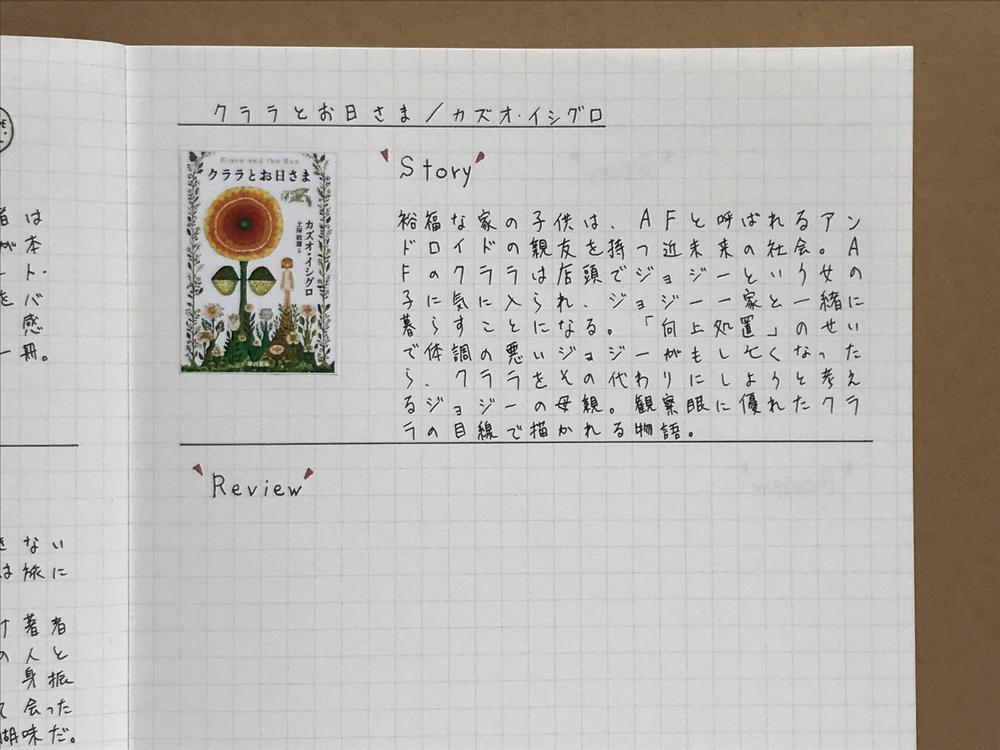 者は
が本
ート・
をバ
感
一冊。
きない
は旅に
け著者
の人と
身振
て会った
醐味だ。
クララとお日さま/カズオ・イシグロ
Klara and the Sun
クララとお日さま
カズオ・イシグロ
土屋政雄 訳
早川書房
Story
裕福な家の子供は、AFと呼ばれるアン
ドロイドの親友を持つ近未来の社会。A
Fのクララは店頭でジョジーという女の
子に気に入られ、ジョジー一家と一緒に
暮らすことになる。「向上処置」のせい
で体調の悪いジョジーがもし亡くなった
ら、クララをその代わりにしようと考え
るジョジーの母親。観察眼に優れたクラ
ラの目線で描かれる物語。
Review